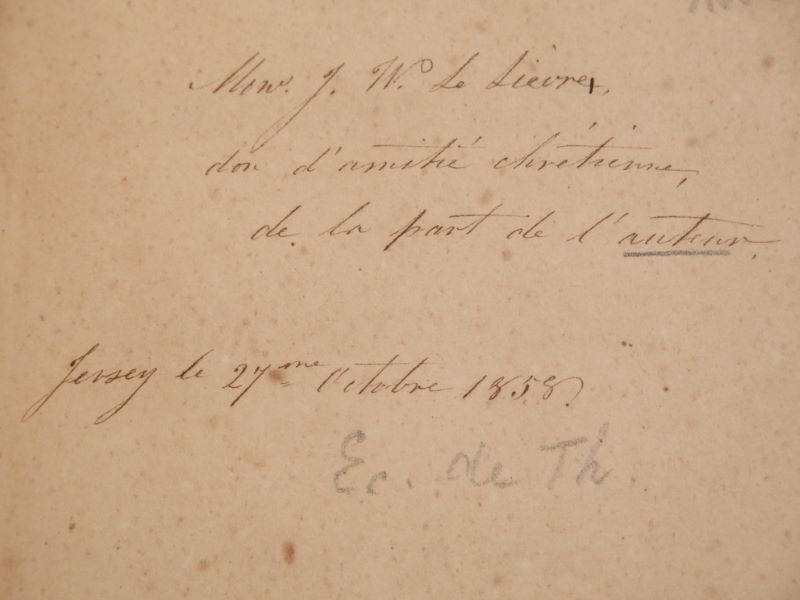 Monsr. J. Wm. Le Lièvre,
don d'amitié chrétienne,
de la part de l'auteur.
Jersey le 27me Octobre 1858.
Ec. de Th.